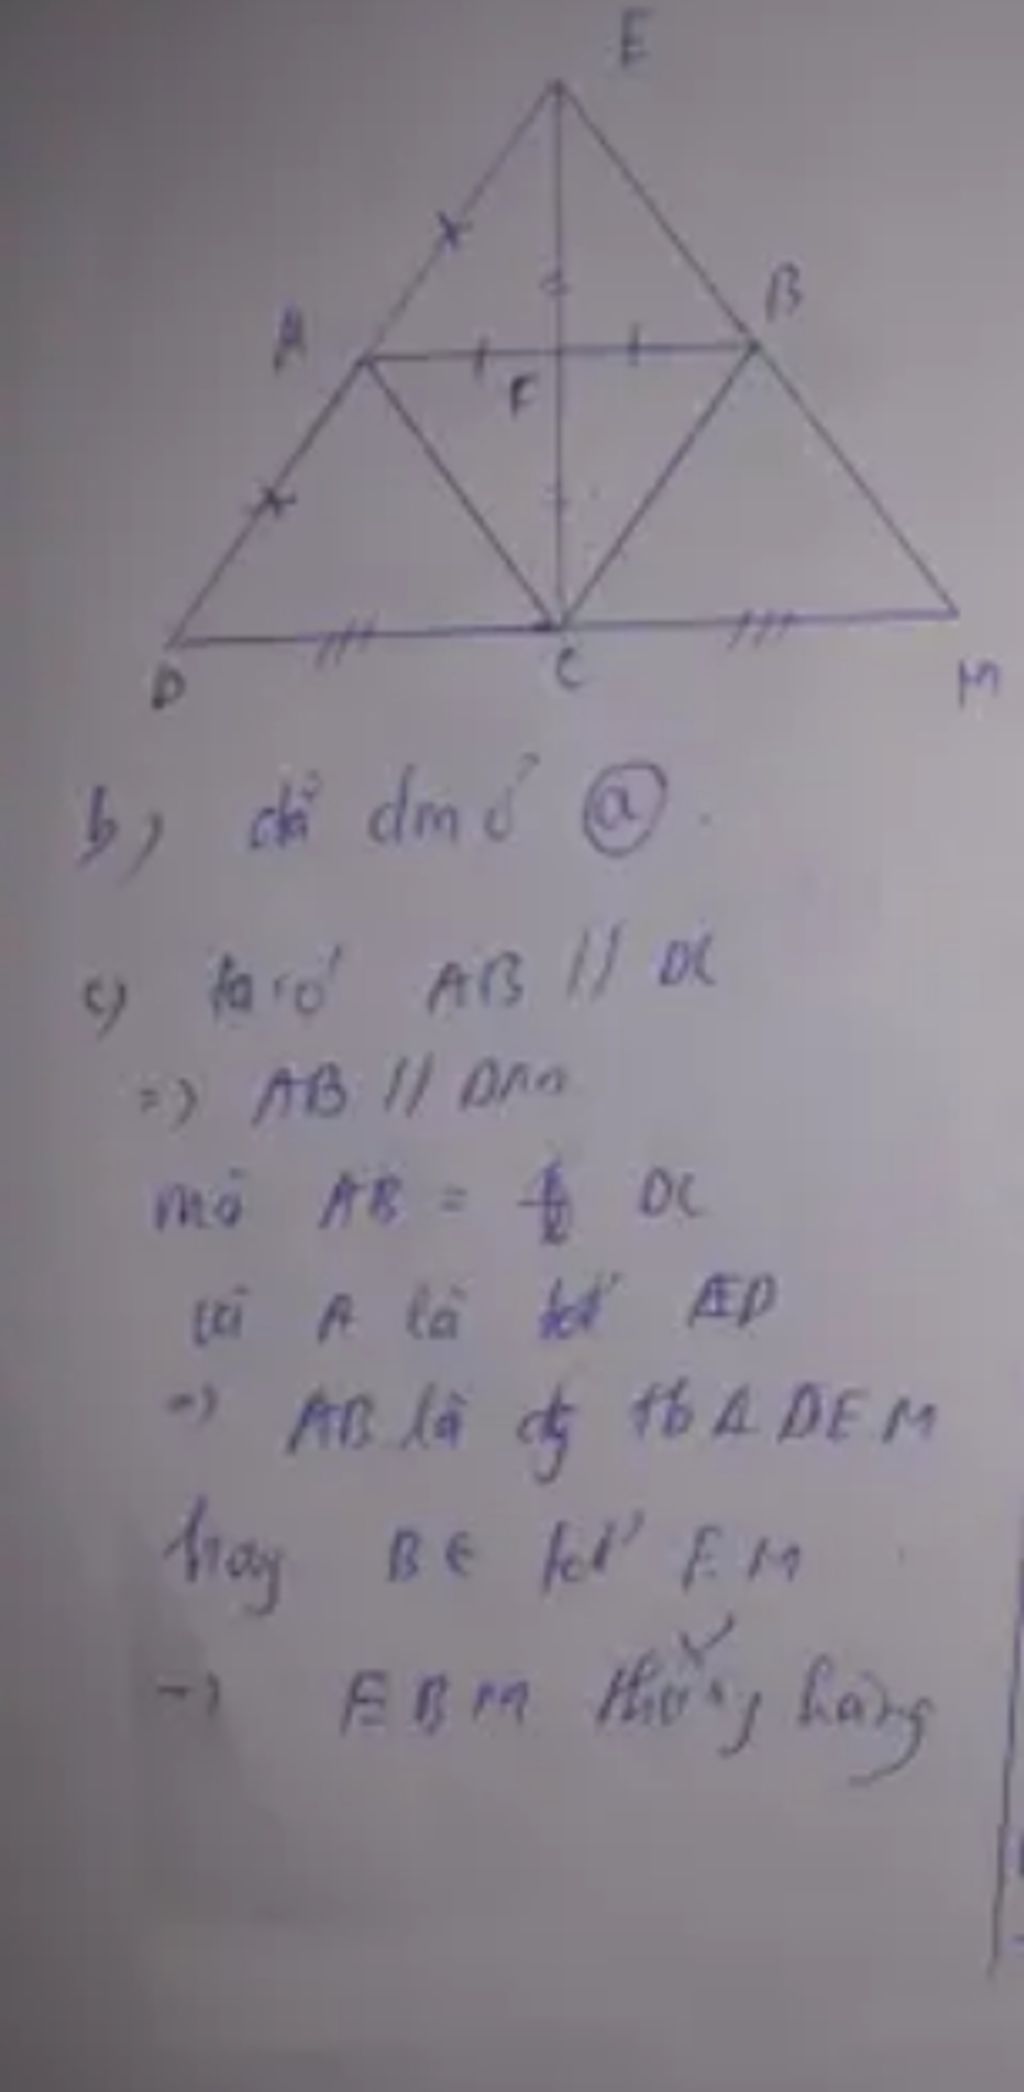 E
A
B
F
D
C
M
b) đã cm ở ⓐ.
c) ta có AB // DC
=> AB // DM
mà AB = DC
và A là tđ ED
=> AB là đg tb Δ DEM
hay B ∈ tđ EM
=> EBM thẳng hàng